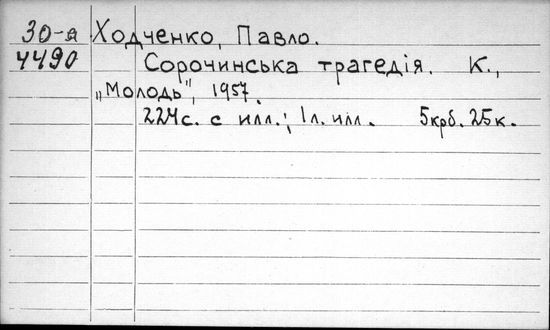 30-я Ходченко, Павло.
4490 Сорочинська трагедія. К.,
„Молодь", 1957.
224с. с илл.; 1л. илл. 5крб. 25к.